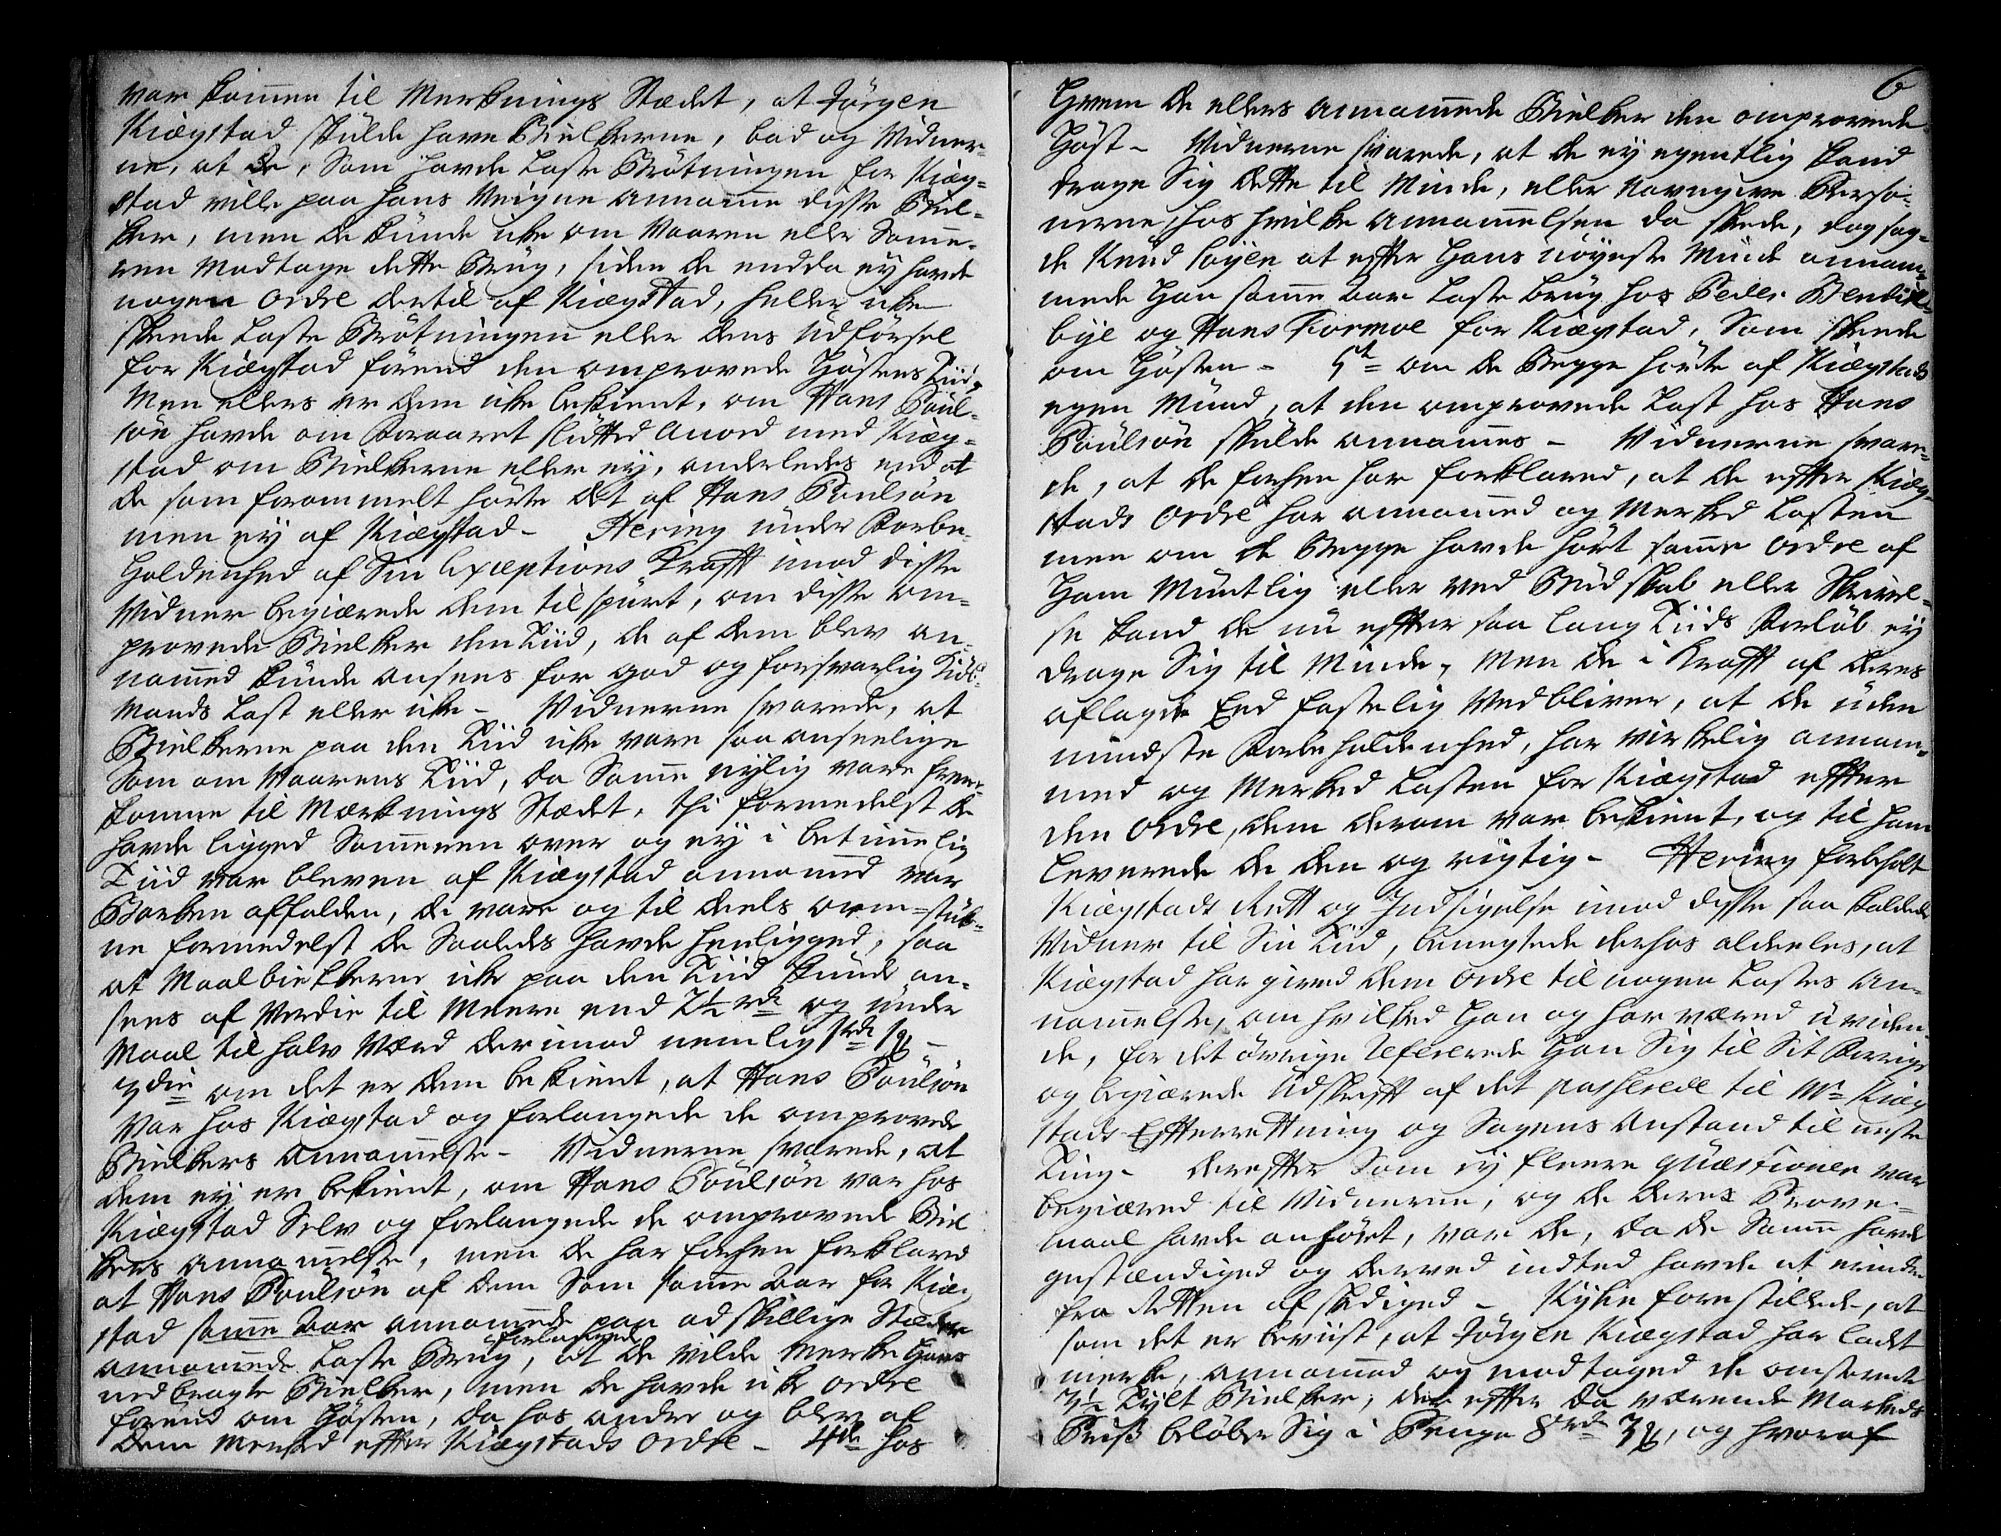 var kommen til Merknings Stædet, at Jörgen
Kiægstad skulde have Bielkerne, bad og Vidner-
ne, at de, som havde Laste Brötningen for Kiæg-
stad ville paa hans Veigne annamme disse Biel-
ker, men de kunde icke om Vaaren eller Somme-
ren Modtage dette Brug, siden de endda ey havde
nogen Ordre dertil af Kiægstad, heller icke
skeede Laste Brötningen eller dens Udförsel
for Kiægstad förend den omprovede Höstens Tiid,
Men ellers er dem icke bekient, om Hans Poul-
sön havde om Foraaret slutted Accord med Kiæg-
stad om Bielkerne eller ey, anderledes end at
de som forommelt hörte det af Hans Poulsön
men ey af Kiægstad - Hering under Forbe-
holdenhed af Sin Exceptions Krafft imod disse
Vidner begiærede dem tilspurt, om disse om-
provede Bielker den Tiid, de af dem blev an-
nammed kunde ansees for god og forsvarlig Kiöb-
mands Last eller icke - Vidnerne svarede, at
Bielkerne paa den Tiid icke vare saa anseelige
Som om Vaarens Tiid, da Samme nylig vare frem-
komne til Mærknings Stædet, thi formedelst de
havde ligged Sommeren over og ey i betimmelig
Tiid var bleven af Kiægstad annammed var
Barken affalden, de vare og til deels
ne formedelst de Saaleds havde henligged, saa
at Maalbielkerne icke paa den Tiid kunde an-
sees af Verdie til Meere end 2½ rdr og under
Maal til halv Værd derimod nemlig 1 rdr 1 ort -
3die om det er dem bekient, at Hans Poulsön
Var hos Kiægstad og forlangede de omprovede
Bielkers Annammelse - Vidnerne svarede, at
dem ey er bekient, om Hans Poulsön var hos
Kiægstad Selv og forlangede de omprovede Biel
kers annammelse, men de har forhen forklared
at Hans Poulsön af dem Som samme Aar for Kiæg-
stad samme Aar annammede paa adskillige Stæder
annammede Laste Brug forlangede, at de vilde Merke Hans
nedbragte Bielker, men de havde icke Ordre
förend om Hösten, da hos andre og blev af
dem Merked effter Kiægstads Ordre - 4de hos
6
Hvem de ellers annammede Bielker den omprovede
Höst - Vidnerne svarede, at de ey egentlig kand
drage Sig dette til Minde, eller Navngive Perso-
nerne, hos hvilke Annammelsen da skede, dog sag-
de Knud at effter Hans nöyeste Minde annam-
mede Han samme Aar Laste Brug hos Peder
bye og Hans Formoe for Kiægstad, Som skeede
om Hösten - 5te om de Begge hörte af Kiægstads
egen Mund, at den omprovede Last hos Hans
Poulsön skulde annammes - Vidnerne svare-
de, at de forhen har forklared, at de effter Kiæg-
stads Ordre har annammed og Merked Lasten
men om de Begge havde hört samme Ordre af
Ham Mundtlig eller ved Budskab eller Skrivel-
se kand de nu effter saa lang Tiids Forlöb ey
drage Sig til Minde, Men de i Krafft af deres
aflagde Eed fastelig Vedbliver, at de uden
mindste Forbeholdenhed, har virkelig annam-
med og Merked Lasten for Kiægstad effter
den Ordre, dem derom var bekient, og til ham
leverede de den og rigtig - Hering forbeholt
Kiægstads Rett og Indsigelse imod disse saa kaldede
Vidner til Sin Tiid, benegtede derhos aldeles, at
Kiægstad har gived dem Ordre til nogen Lastes An-
nammelse, om hvilked Han og har været uviden-
de, for det övrige refererede Han Sig til Sit Forrige
og begiærede Udskrifft af det passerede til Mr Kiæg
stads Effterrettning og Sagens Anstand til neste
Ting - dereffter Som ey fleere Quæstioner var
begiæred til Vidnerne, og de deres Prove-
maal havde anhört, var de, da de Samme havde
gestændiged og derved indted havde at erindre
fra Retten afskediged - Kyhn forestillede, at
som det er beviist, at Jörgen Kiægstad har ladt
merke, annammed og modtaged de omstevnte
7½ Tylt Bielker, der effter da værende Markeds
Priis belöber Sig i Penge 8 rdr 3 ort, og hvoraf